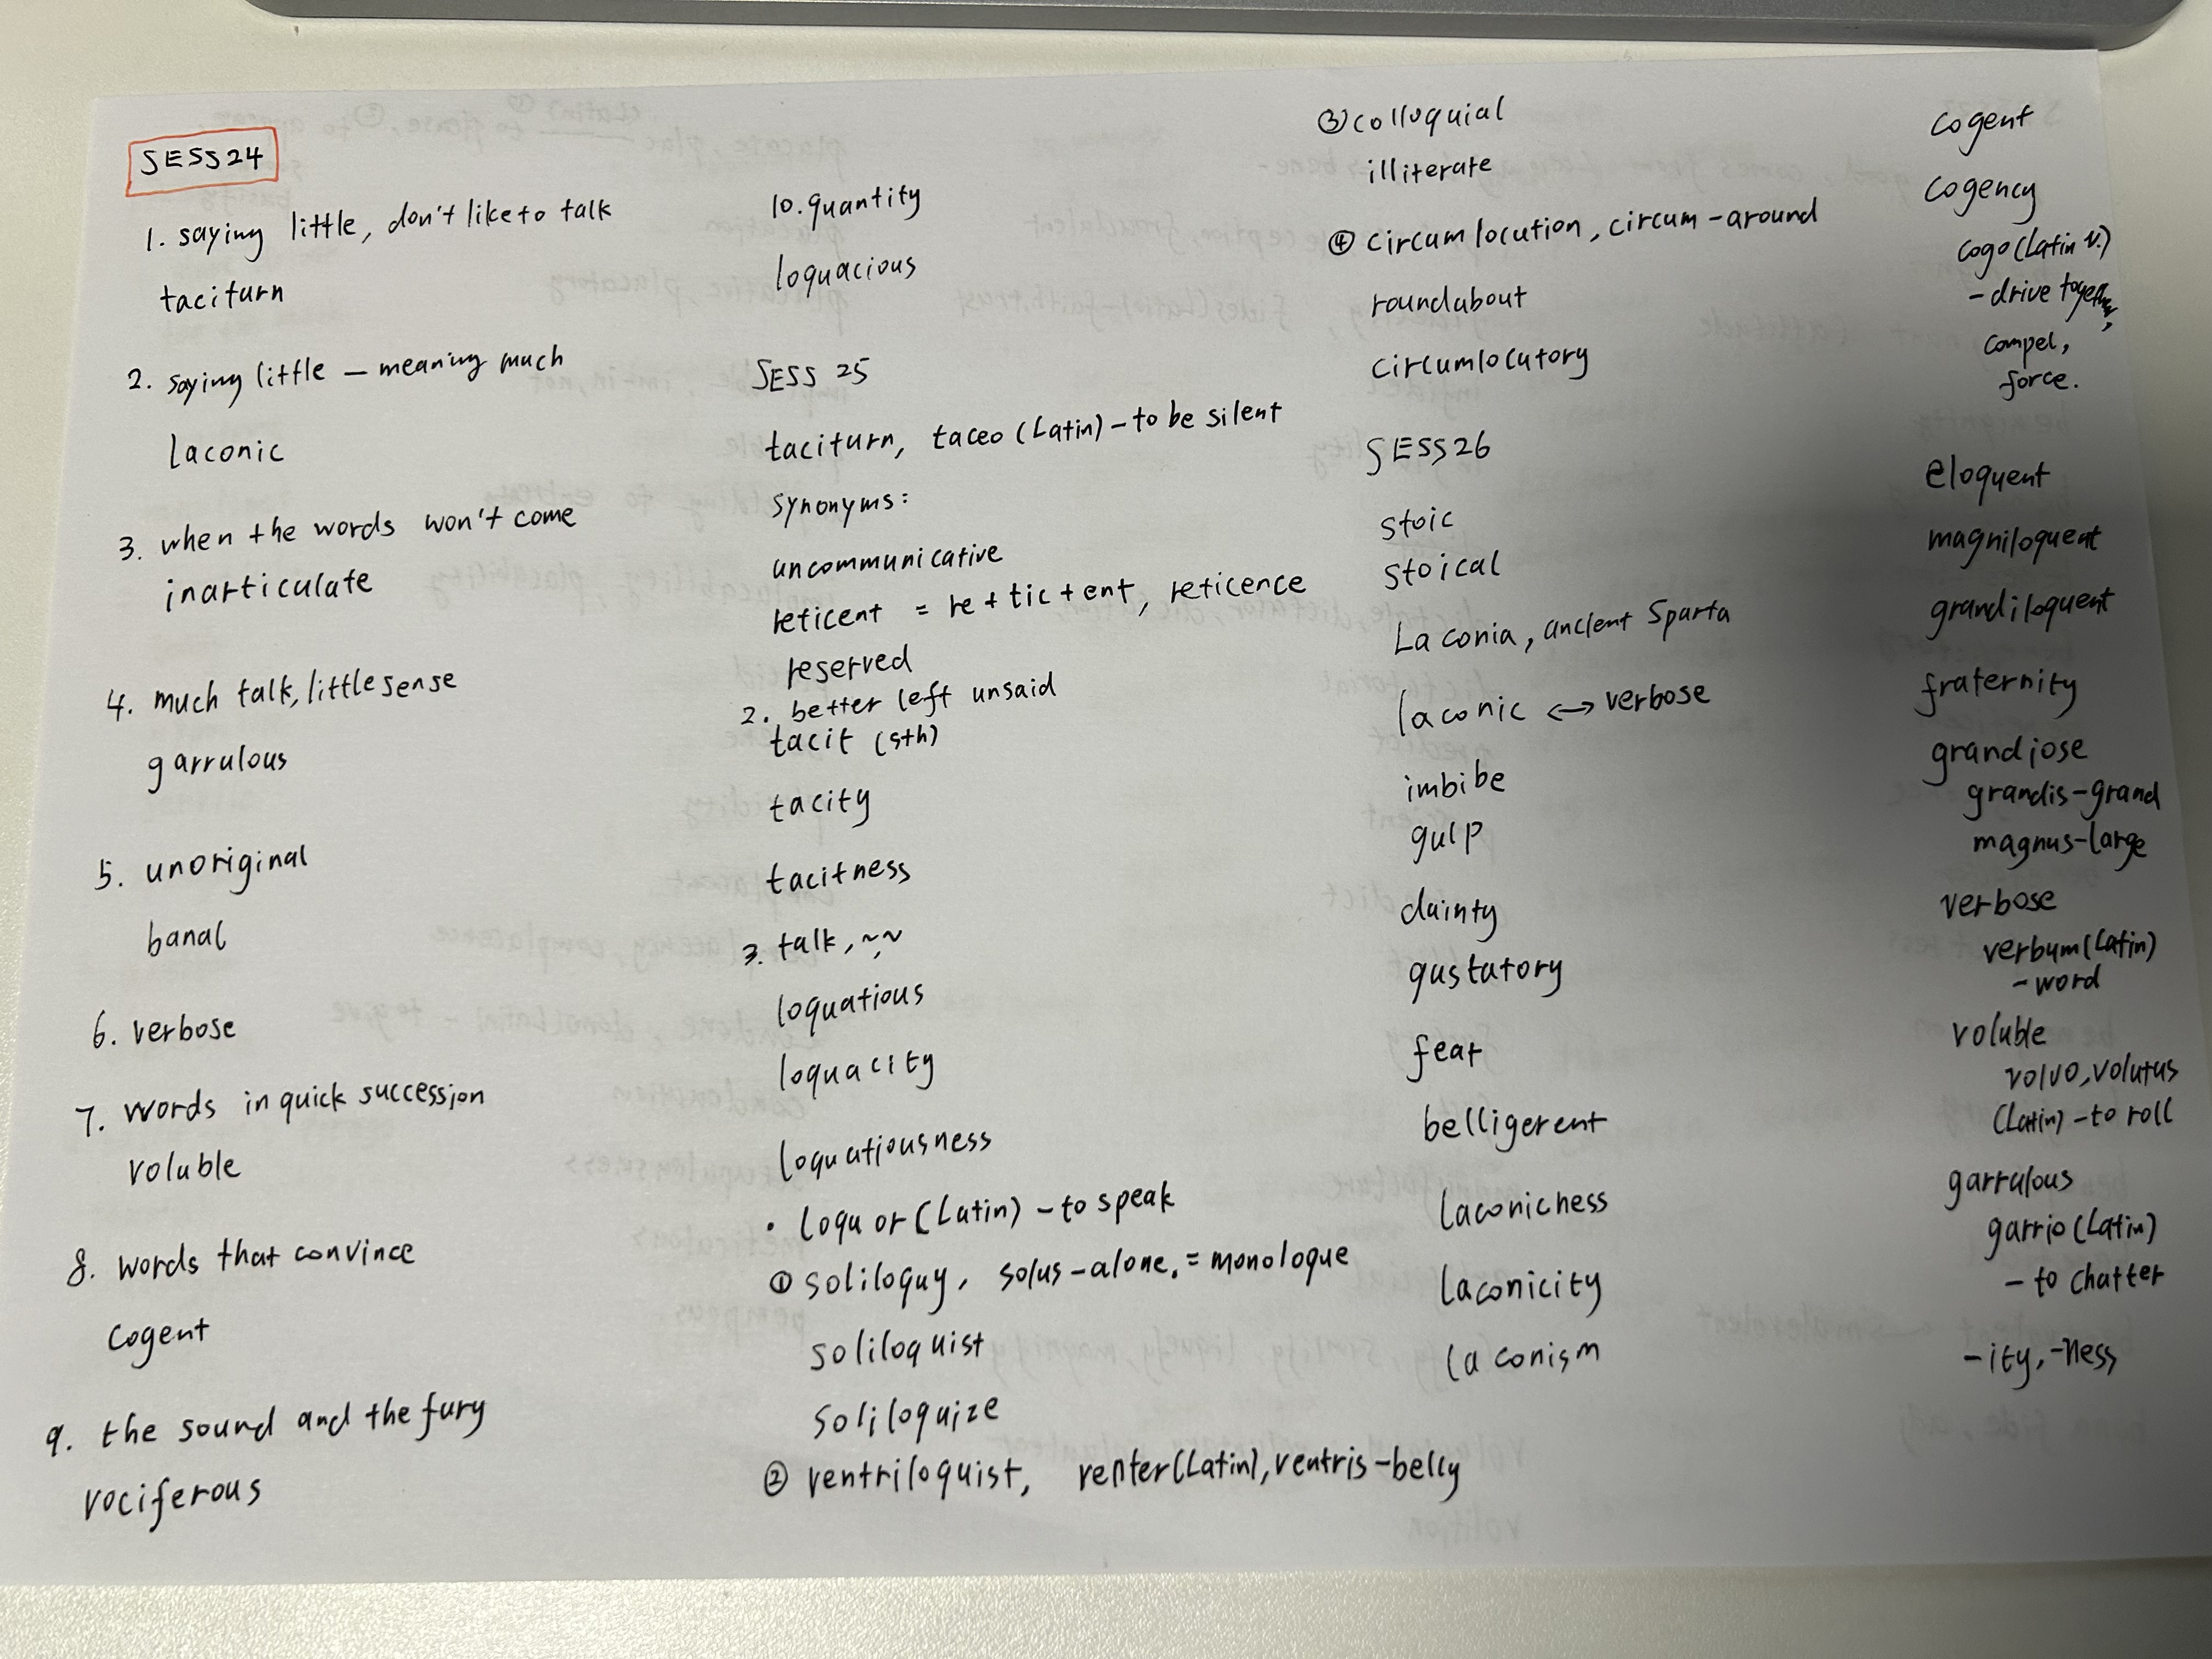 SESS24
1. saying little, don't like to talk
taciturn
2. saying little – meaning much
laconic
3. when the words won't come
inarticulate
4. much talk, little sense
garrulous
5. unoriginal
banal
6. verbose
7. words in quick succession
voluble
8. words that convince
cogent
9. the sound and the fury
vociferous
10. quantity
loquacious
SESS 25
taciturn, taceo (Latin) – to be silent
synonyms:
uncommunicative
reticent = re + tic + ent, reticence
reserved
2. better left unsaid
tacit (sth)
tacity
tacitness
3. talk, ~,~
loquatious
loquacity
loquatiousness
· loquor (Latin) – to speak
① soliloquy, solus – alone. = monologue
soliloquist
soliloquize
② ventriloquist, venter (Latin), ventris – belly
③ colloquial
illiterate
④ circumlocution, circum – around
roundabout
circumlocutory
SESS26
stoic
stoical
Laconia, ancient Sparta
laconic <–> verbose
imbibe
gulp
dainty
gustatory
fear
belligerent
laconicness
laconicity
laconism
cogent
cogency
cogo (Latin v.)
– drive together,
compel,
force.
eloquent
magniloquent
grandiloquent
fraternity
grandiose
grandis – grand
magnus – large
verbose
verbum (Latin)
– word
voluble
volvo, volutus
(Latin) – to roll
garrulous
garrio (Latin)
– to chatter
-ity, -ness